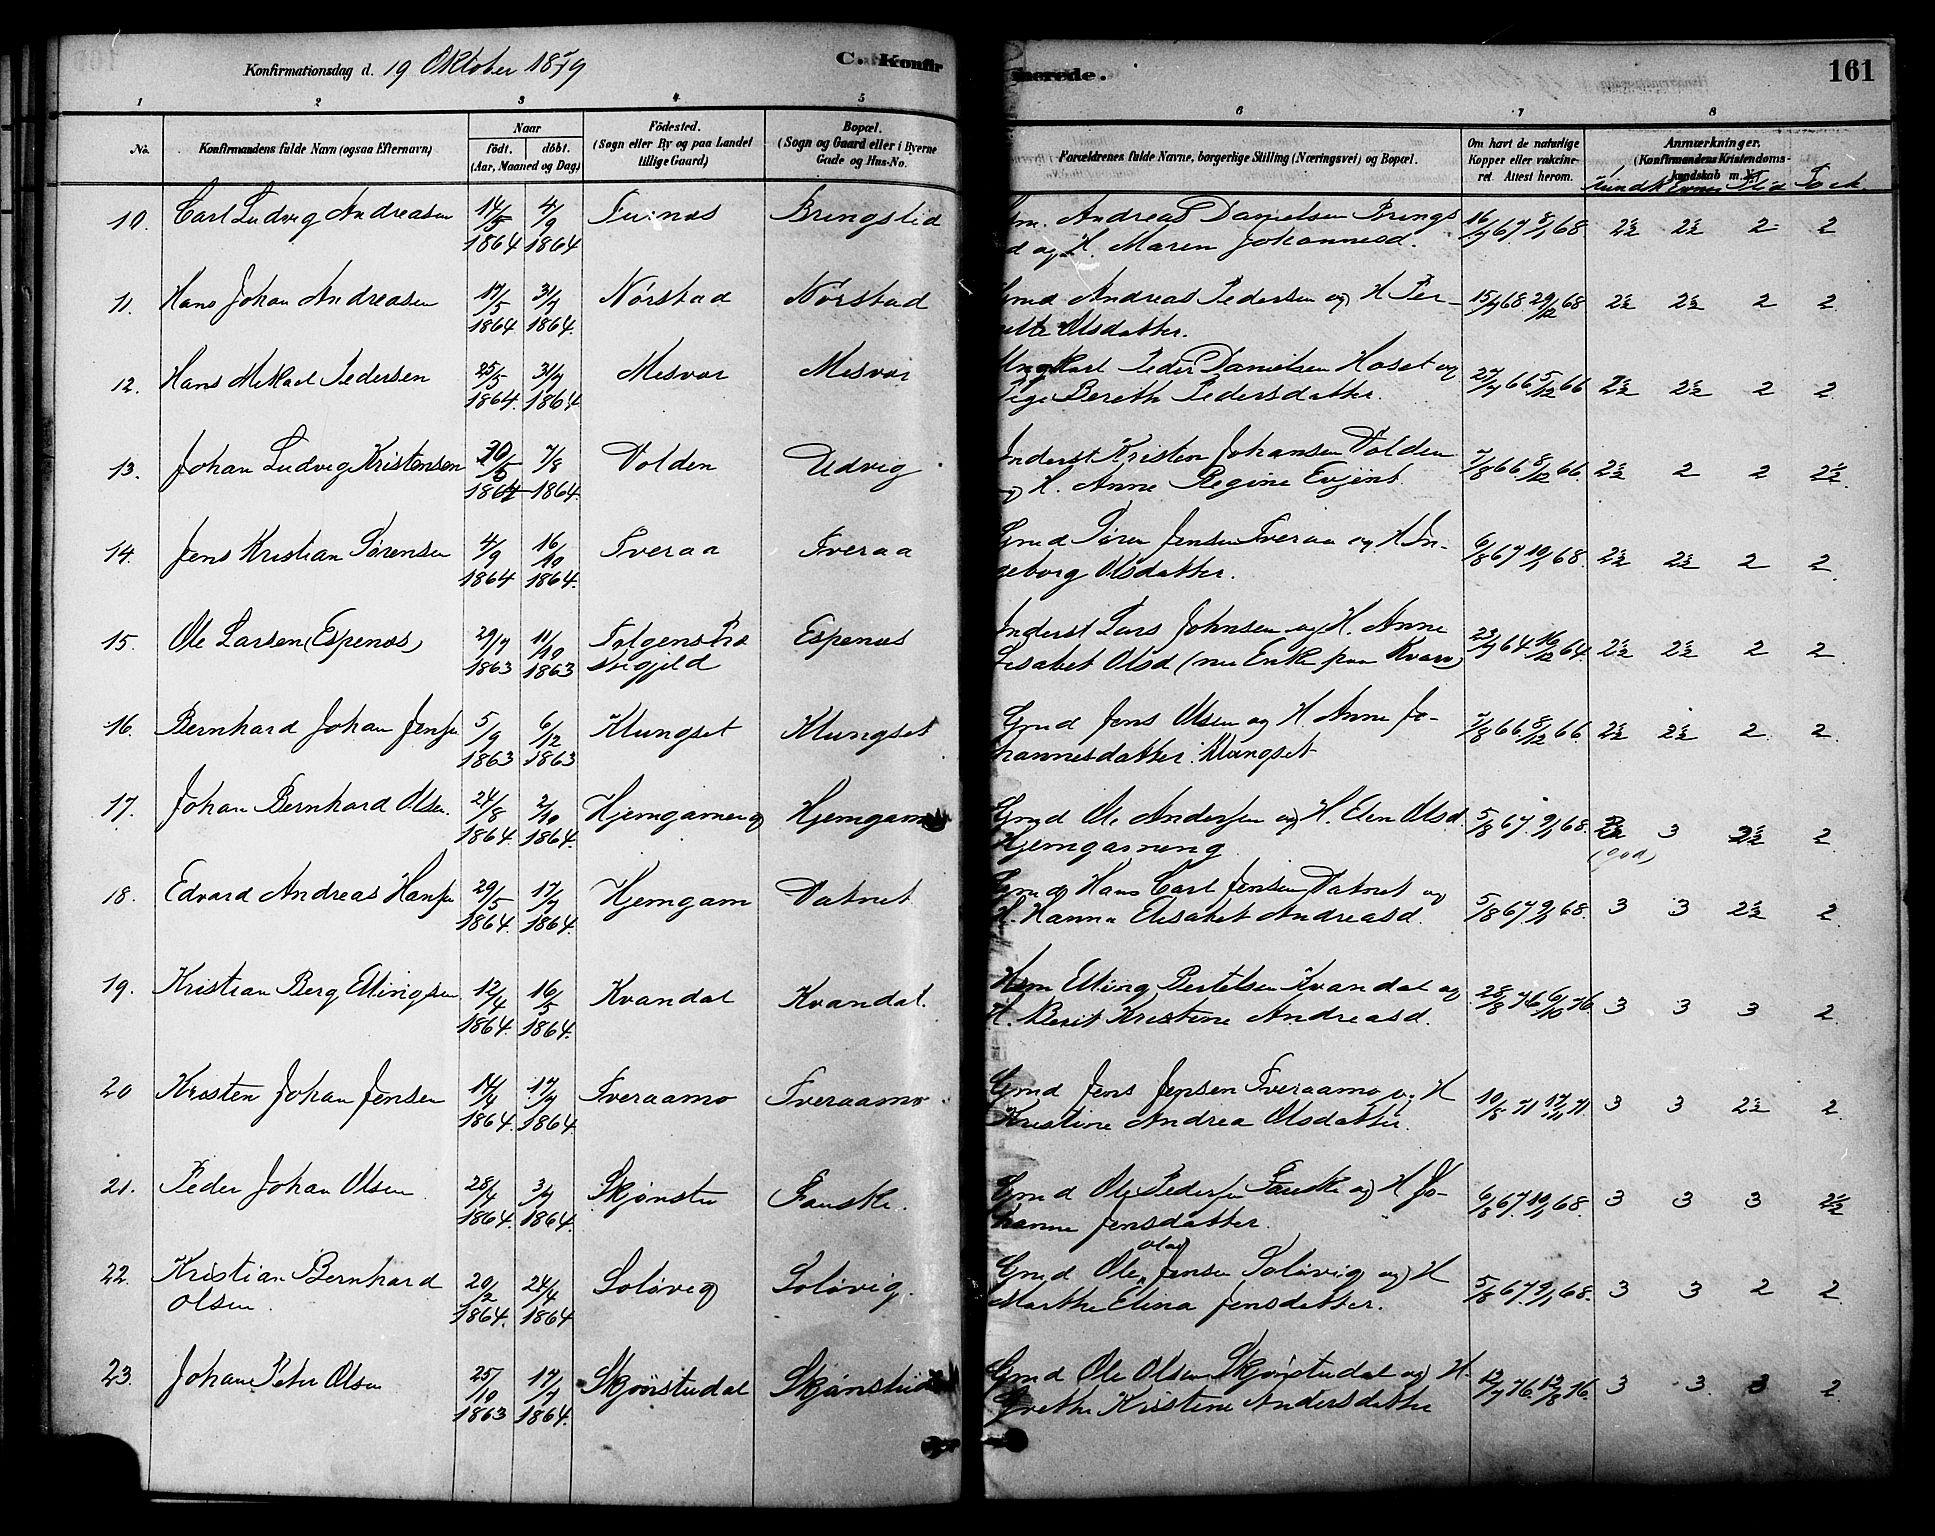 Konfirmationsdag d. 19 Oktober 1879
C. Konfir
merede.
161
1 2 3 4 5 6 7 8
No.
Konfirmandens fulde Navn (ogsaa Efternavn)
Naar
födt. döbt.
(Aar, Maaned og Dag)
Födested.
(Sogn eller By og paa Landet
tillige Gaard)
Bopæl.
(Sogn og Gaard eller i Byerne
Gade og Hus-No.
Forældrenes fulde Navne, borgerlige Stilling (Næringsvei) og Bopæl.
Om havt de naturlige
Kopper eller vakcine-
ret. Attest herom.
Anmærkninger.
(Konfirmandens Kristendoms-
kundskab m. V.)
Kundsk Evner Flid
10. Carl Ludvig Andreasen 14/5 1864 4/9 1864 Furnes Bringslid
Andreas Danielsen Brings
d og H. Maren Johannesd. 68 2½ 2½ 2 2
11. Hans Johan Andreasen 17/5 1864 31/7 1864. Nörstad Nörstad
Gmd Andreas Pedersen og H Per-
nille Olsdatter. 15/7 68 29/12 68 2½ 2½ 2 2
12. Hans Mikael Pedersen 25/5 1864. 31/7 1864 Misvær Misvær
Ungkarl Peder Danielsen Hoset og
Pige Berith Pedersdatter. 27/7 66 5/12 66 2½ 2½ 2 2
13. Johan Ludvig Kristensen 30/5 1864 7/8 1864. Volden Udvig
Inderst Kristen Johansen Volden
og H. Anne Regine Evjent 7/8 66 8/12 66. 2½ 2 2 2½
14. Jens Kristian Sörensen 4/9 1864 16/10 1864. Tveraa Tveraa
Gmd Sören Jensen Tveraa og H In-
geborg Olsdatter. 6/8 67 10/1 68. 2½ 2½ 2 2
15. Ole Larsen (Espenæs) 29/7 1863 11/10 1863 Folgens Præ
stegjeld Espenæs
Inderst Lars Johnsen og H. Anne
Lisabet Olsd (nu Enke paa Kvæn) 23/7 64 16/12 64. 2½ 2½ 2 2
16. Bernhard Johan Jensen 5/9 1863 6/12 1863 Klungset Klungset
Gmd Jens Olsen og H Anne Jo-
hannesdatter Klungset 7/8 66. 8/12 66. 2½ 2½ 2 2
17. Johan Bernhard Olsen. 24/8 1864. 2/10 1864. Hjemgameng Hjemgam
Gmd Ole Andersen og H. Elen Olsd.
5/8 67. 9/1 68. (god) 3 2½ 2
18. Edvard Andreas Hansen 29/5 1864. 17/7 1864. Hjemgam Vatnet
Gmd Hans Carl Jensen Vatnet og
H. Hanna Elisabet Andreasd. 5/8 67. 9/1 68. 3 3 2½ 2
19. Kristian Berg Ellingsen 12/4 1864. 16/5 1864. Kvandal Kvandal.
Hsm Elling Bertelsen Kvandal og
H. Berit Kristine Andreasd. 28/8 76 6/10 76 3 3 3 2
20 Kristen Johan Jensen 14/4 1864. 17/7 1864. Tveraamo Tveraamo
Gmd Jens Jensen Tveraamo og H
Kristine Andrea Olsdatter. 10/8 71 17/11 71 3 3 2½ 2
21. Peder Johan Olsen 28/4 1864. 3/7 1864. Skjönstu Fauske.
Gmd Ole Pedersen Fauske og H Jo-
hanne Jensdatter. 6/8 67. 10/1 68. 3 3 3 2½
22. Kristian Bernhard
Olsen. 20/2 1864. 24/4 1864 Solövig Solövig.
Gmd Ole Olai Jensen Solövig og H
Marthe Elina Jensdatter. 5/8 67. 9/1 68. 3 3 2 2
23. Johan Peter Olsen 25/10 1863 17/7 1864. Skjönstudal Skjönstud
Gmd Ole Olsen Skjönstudal og H.
Grethe Kristine Andersdatter 12/7 76. 12/8 76. 3 3 3 2